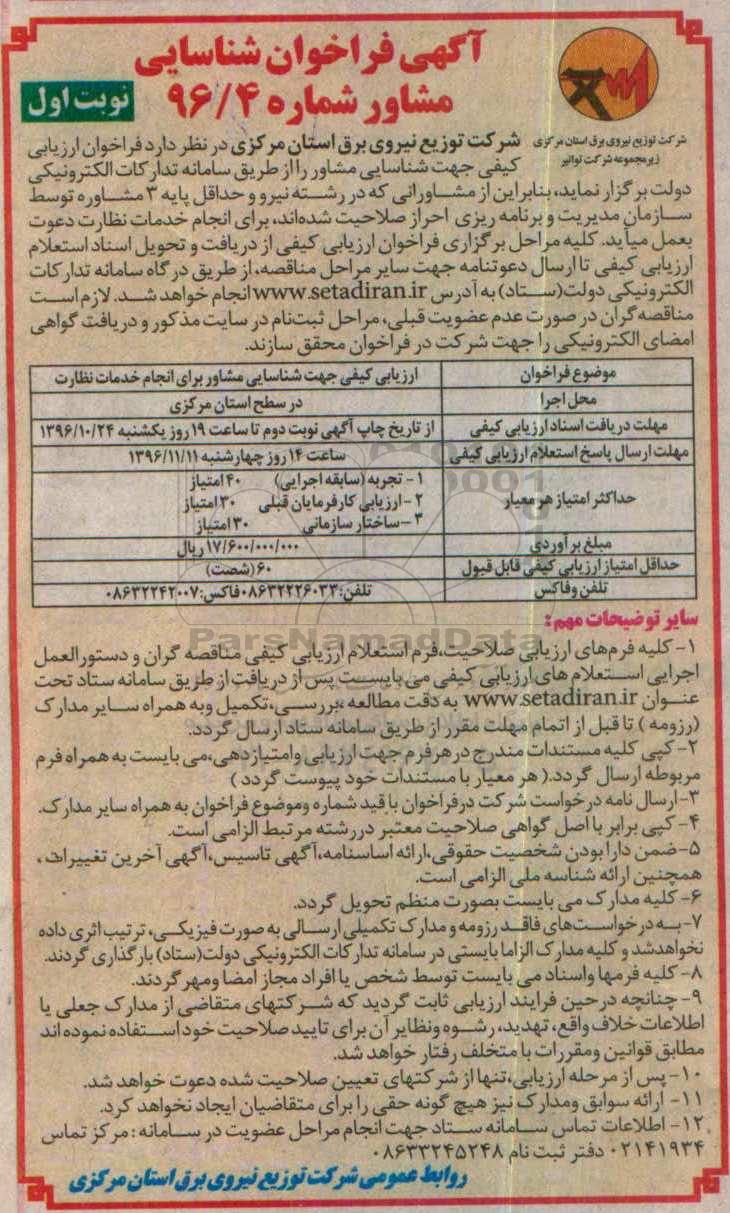 آگهی فراخوان شناسایی
مشاور شماره ۹۶/۴
نوبت اول
شرکت توزیع نیروی برق استان مرکزی
زیرمجموعه شرکت توانیر
شرکت توزیع نیروی برق استان مرکزی در نظر دارد فراخوان ارزیابی
کیفی جهت شناسایی مشاور را از طریق سامانه تدارکات الکترونیکی
دولت برگزار نماید، بنابراین از مشاورانی که در رشته نیرو و حداقل پایه ۳ مشاوره توسط
سازمان مدیریت و برنامه ریزی احراز صلاحیت شده‌اند، برای انجام خدمات نظارت دعوت
بعمل میآید. کلیه مراحل برگزاری فراخوان ارزیابی کیفی از دریافت و تحویل اسناد استعلام
ارزیابی کیفی تا ارسال دعوتنامه جهت سایر مراحل مناقصه، از طریق درگاه سامانه تدارکات
الکترونیکی دولت(ستاد) به آدرس www.setadiran.ir انجام خواهد شد. لازم است
مناقصه گران در صورت عدم عضویت قبلی، مراحل ثبت‌نام در سایت مذکور و دریافت گواهی
امضای الکترونیکی را جهت شرکت در فراخوان محقق سازند.
موضوع فراخوان ارزیابی کیفی جهت شناسایی مشاور برای انجام خدمات نظارت
محل اجرا در سطح استان مرکزی
مهلت دریافت اسناد ارزیابی کیفی از تاریخ چاپ آگهی نوبت دوم تا ساعت ۱۹ روز یکشنبه ۱۳۹۶/۱۰/۲۴
مهلت ارسال پاسخ استعلام ارزیابی کیفی ساعت ۱۴ روز چهارشنبه ۱۳۹۶/۱۱/۱۱
حداکثر امتیاز هر معیار
۱- تجربه (سابقه اجرایی) ۴۰ امتیاز
۲- ارزیابی کارفرمایان قبلی ۳۰ امتیاز
۳- ساختار سازمانی ۳۰ امتیاز
مبلغ برآوردی ۱۷/۶۰۰/۰۰۰/۰۰۰ ریال
حداقل امتیاز ارزیابی کیفی قابل قبول ۶۰ (شصت)
تلفن وفاکس تلفن: ۰۸۶۳۲۲۲۶۰۳۳ فاکس: ۰۸۶۳۲۲۴۲۰۰۷
ParsNamadData
سایر توضیحات مهم:
۱- کلیه فرم‌های ارزیابی صلاحیت،فرم استعلام ارزیابی کیفی مناقصه گران و دستورالعمل
اجرایی استعلام های ارزیابی کیفی می بایست پس از دریافت از طریق سامانه ستاد تحت
عنوان www.setadiran.ir به دقت مطالعه ،بررسی،تکمیل وبه همراه سایر مدارک
(رزومه ) تا قبل از اتمام مهلت مقرر از طریق سامانه ستاد ارسال گردد.
۲- کپی کلیه مستندات مندرج درهرفرم جهت ارزیابی وامتیازدهی،می بایست به همراه فرم
مربوطه ارسال گردد.( هر معیار با مستندات خود پیوست گردد )
۳-ارسال نامه درخواست شرکت درفراخوان با قید شماره وموضوع فراخوان به همراه سایر مدارک.
۴- کپی برابر با اصل گواهی صلاحیت معتبر دررشته مرتبط الزامی است.
۵-ضمن دارا بودن شخصیت حقوقی،ارائه اساسنامه،آگهی تاسیس،آگهی آخرین تغییرات،
همچنین ارائه شناسه ملی الزامی است.
۶- کلیه مدارک می بایست بصورت منظم تحویل گردد.
۷-به درخواست‌های فاقد رزومه و مدارک تکمیلی ارسالی به صورت فیزیکی، ترتیب اثری داده
نخواهدشد و کلیه مدارک الزاما بایستی در سامانه تدارکات الکترونیکی دولت(ستاد) بارگذاری گردند.
۸- کلیه فرمها واسناد می بایست توسط شخص یا افراد مجاز امضا ومهر گردند.
۹- چنانچه درحین فرایند ارزیابی ثابت گردید که شرکتهای متقاضی از مدارک جعلی یا
اطلاعات خلاف واقع، تهدید، رشوه ونظایر آن برای تایید صلاحیت خود استفاده نموده اند
مطابق قوانین ومقررات با متخلف رفتار خواهد شد.
۱۰- پس از مرحله ارزیابی،تنها از شرکتهای تعیین صلاحیت شده دعوت خواهد شد.
۱۱- ارائه سوابق ومدارک نیز هیچ گونه حقی را برای متقاضیان ایجاد نخواهد کرد.
۱۲- اطلاعات تماس سامانه ستاد جهت انجام مراحل عضویت در سامانه: مرکز تماس
۰۲۱۴۱۹۳۴ دفتر ثبت نام ۰۸۶۳۳۲۴۵۲۴۸
روابط عمومی شرکت توزیع نیروی برق استان مرکزی